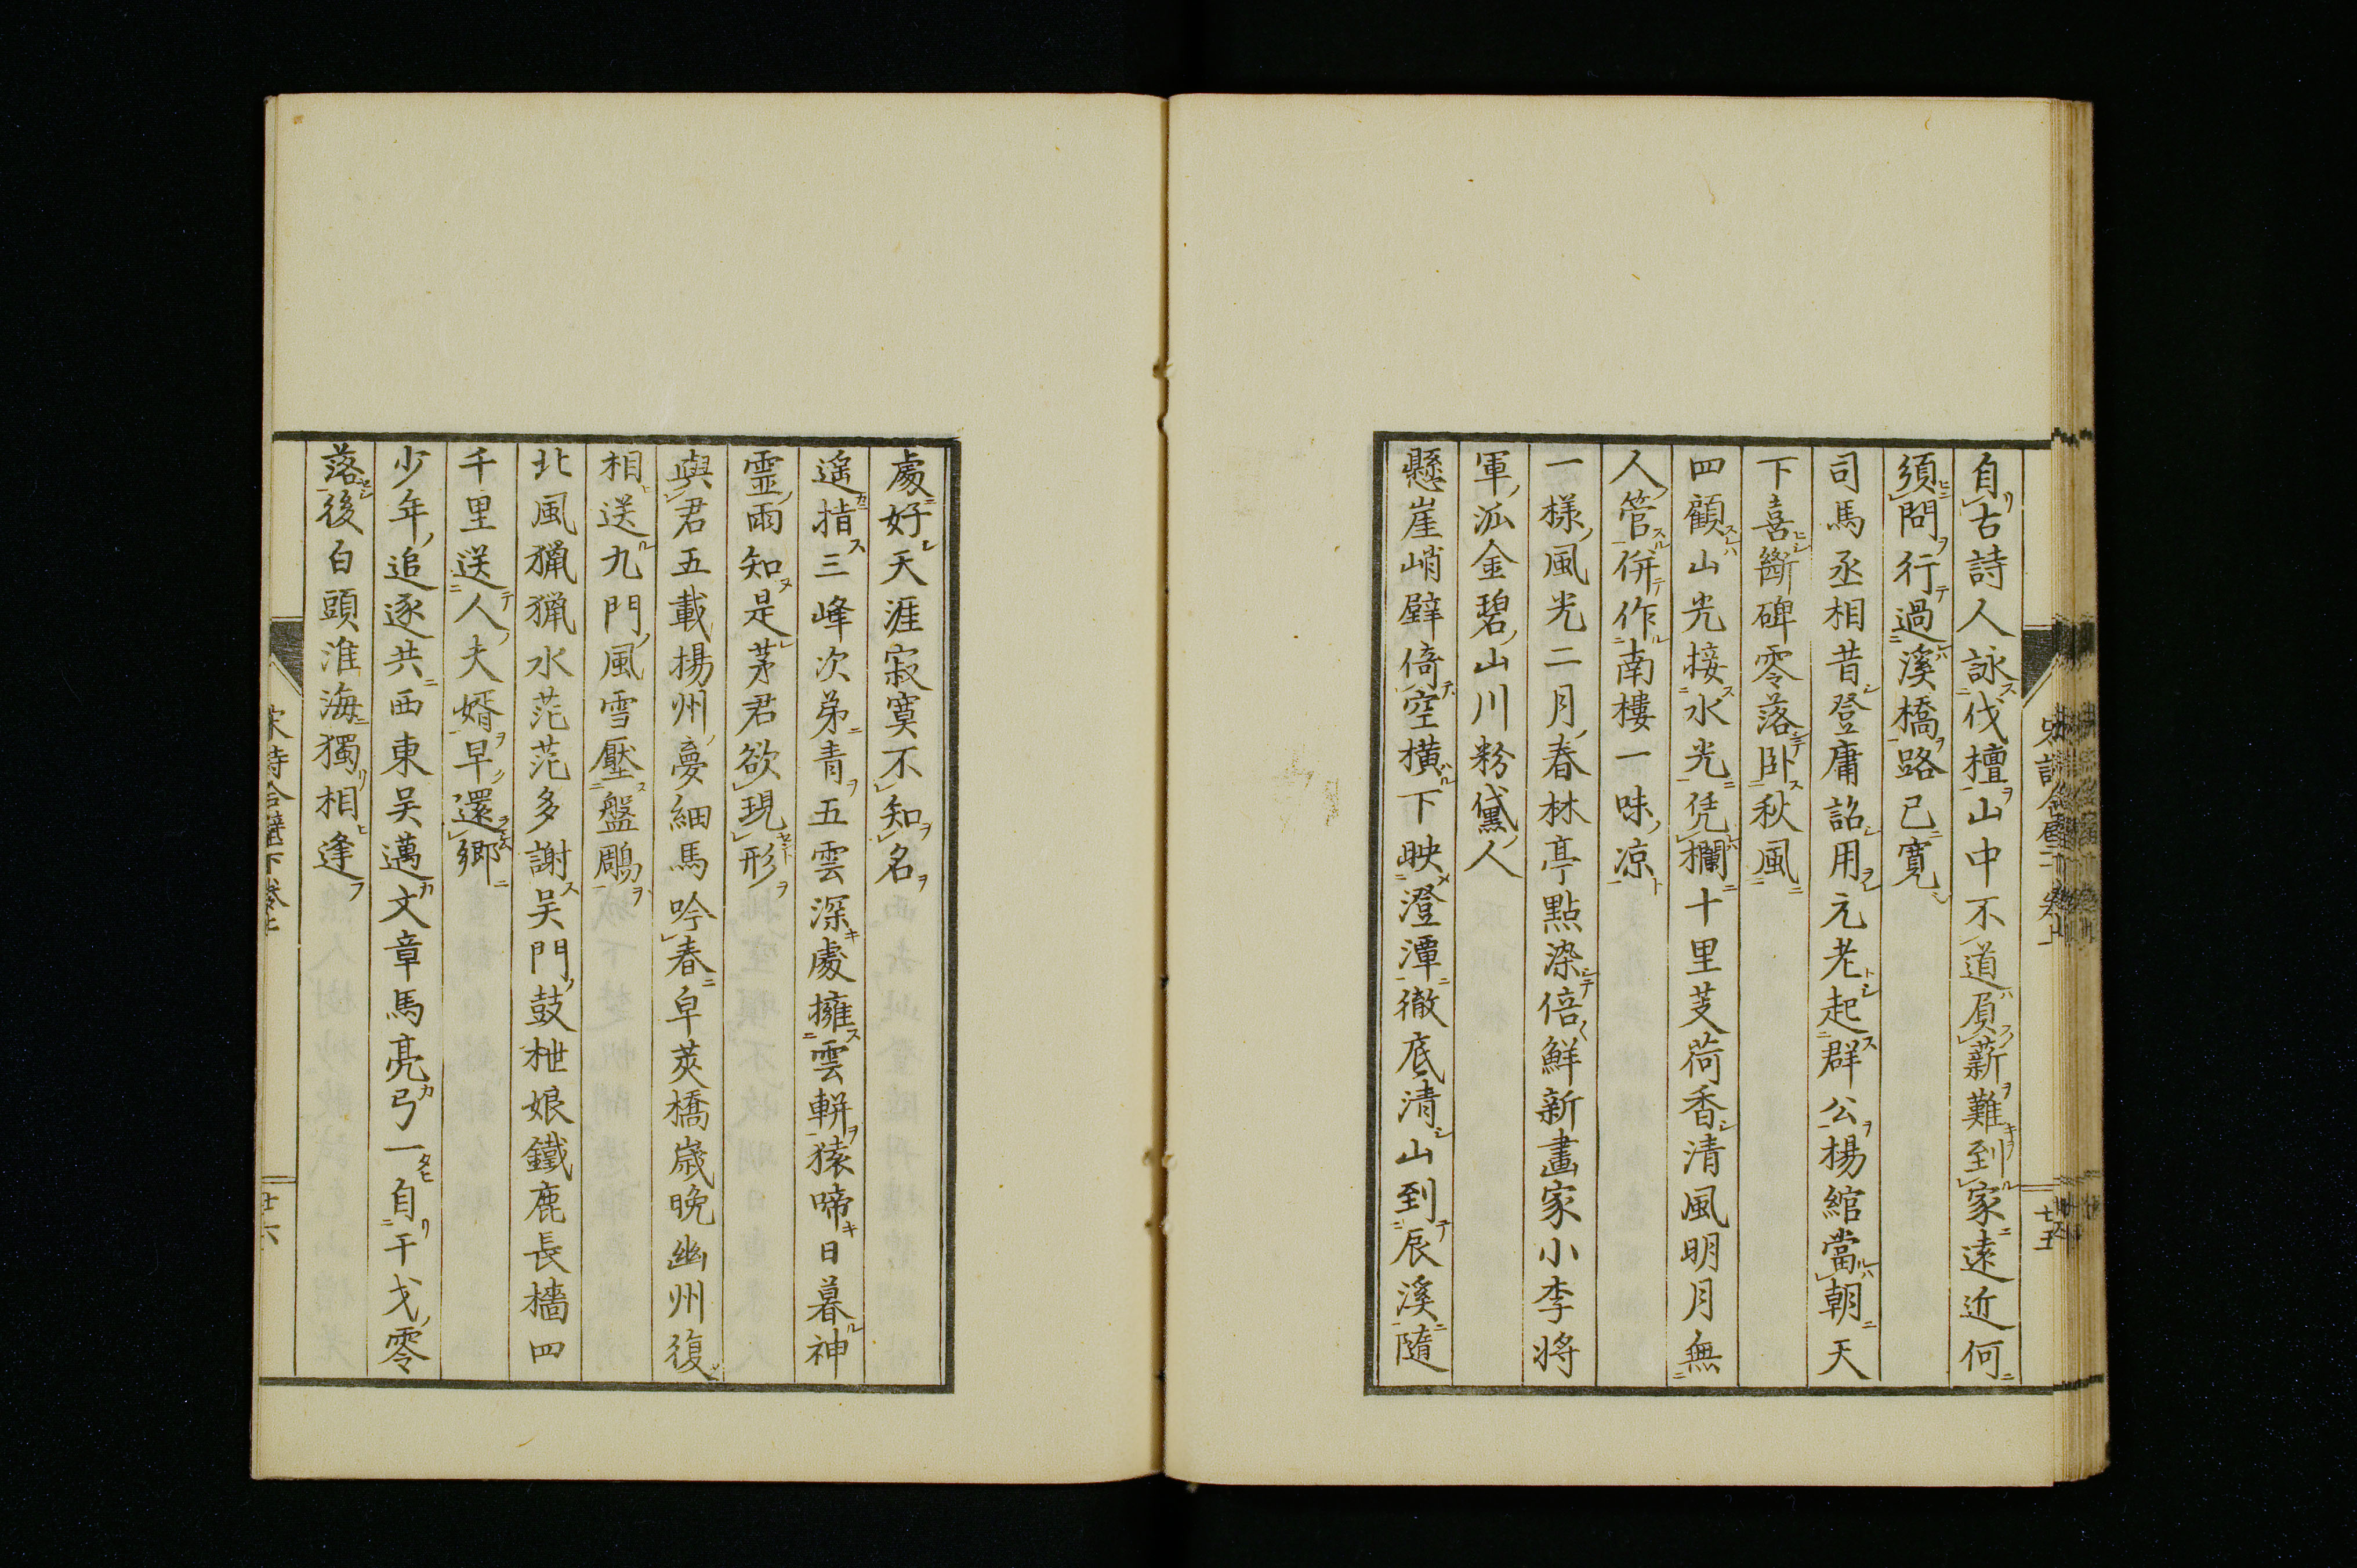 自古詩人詠伐檀山中不道負薪難到家遠近何
須問行過溪橋路已寛
司馬丞相昔登庸詔用元老起群公楊綰當朝天
下喜斷碑零落臥秋風
四顧山光接水光凭欄十里芰荷香清風明月無
人管併作南樓一味凉
一樣風光二月春林亭點染倍鮮新畫家小李将
軍泒金碧山川粉黛人
懸崖峭壁倚空横下映澄潭徹底清山到辰溪隨
處好天涯寂寞不知名
遥指三峰次第青五雲深處擁雲軿猿啼日暮神
靈雨知是茅君欲現形
與君五載揚州夢細馬吟春皁莢橋歳晩幽州復
相送九門風雪壓盤鵰
北風猟猟水茫茫多謝吴門鼓枻娘鐵鹿長檣四
千里送人夫婿早還鄉
少年追逐共西東吴邁文章馬亮弓一自干戈零
落後白頭淮海獨相逢